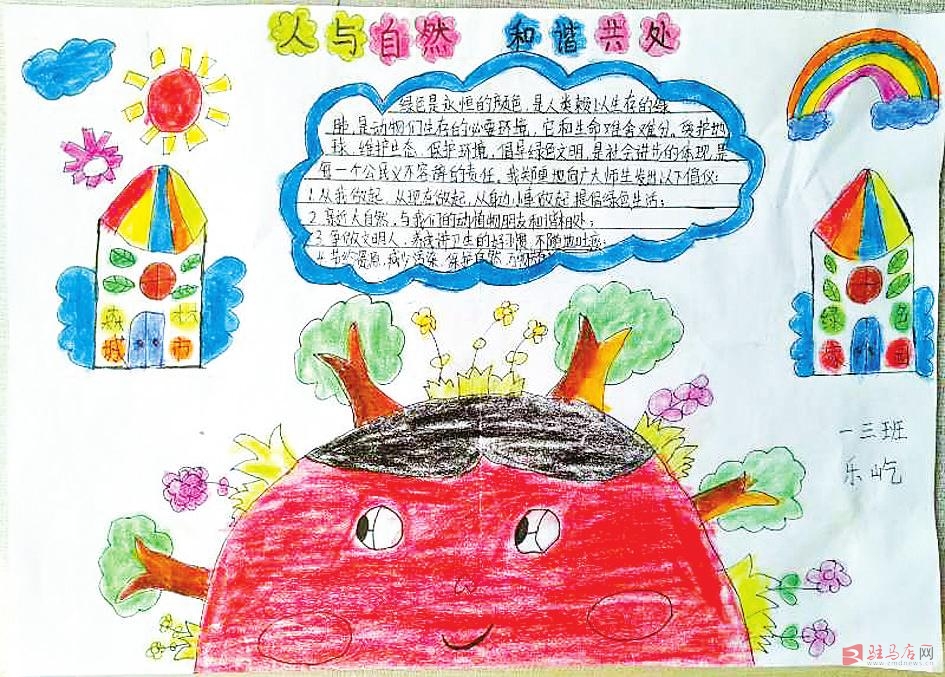 人与自然 和谐共处
绿色是永恒的颜色,是人类赖以生存的绿
脉,是动物们生存的必要环境,它和生命难舍难分。爱护地
球、维护生态、保护环境,倡导绿色文明,是社会进步的体现,是
每一个公民义不容辞的责任。我郑重地向广大师生发出以下倡仪:
1.从我做起,从现在做起,从身边小事做起,提倡绿色生活;
2.亲近大自然,与我们的动植物朋友和谐相处;
3.争做文明人,养成讲卫生的好习惯,不随地吐痰;
4.节约资源,减少污染,保护自然
森林
城市
绿色
家园
一三班
乐屹
驻马店网
www.zmdnews.cn